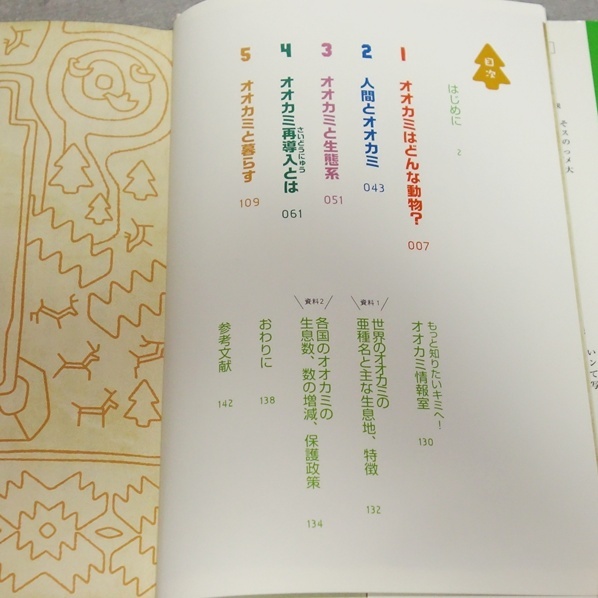 目次
はじめに
2
1
オオカミはどんな動物?
007
2
人間とオオカミ
043
3
オオカミと生態系
051
4
オオカミ再導入とは
さいどうにゅう
061
5
オオカミと暮らす
109
もっと知りたいキミへ!
オオカミ情報室
130
資料1
世界のオオカミの
亜種名と主な生息地、特徴
132
資料2
各国のオオカミの
生息数、数の増減、保護政策
134
おわりに
138
参考文献
142